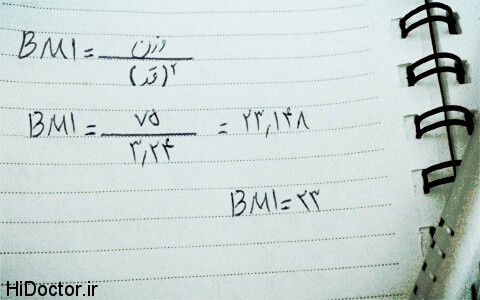 BMI = وزن / (قد)²
BMI = ۷۵ / ۳,۲۴ = ۲۳,۱۴۸
BMI = ۲۳
HiDoctor.ir